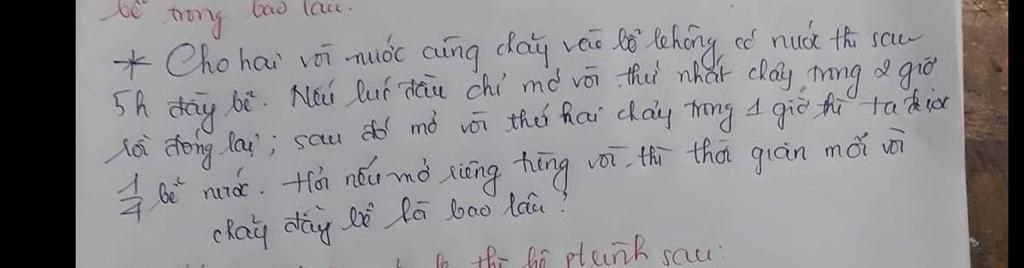 bể trong bao lâu.
* Cho hai vòi nước cùng chảy vào bể không có nước thì sau
5h đầy bể. Nếu lúc đầu chỉ mở vòi thứ nhất chảy trong 2 giờ
rồi đóng lại; sau đó mở vòi thứ hai chảy trong 1 giờ thì ta được
1/4 bể nước. Hỏi nếu mở riêng từng vòi thì thời gian mỗi vòi
chảy đầy bể là bao lâu?
thì hệ phình sau: